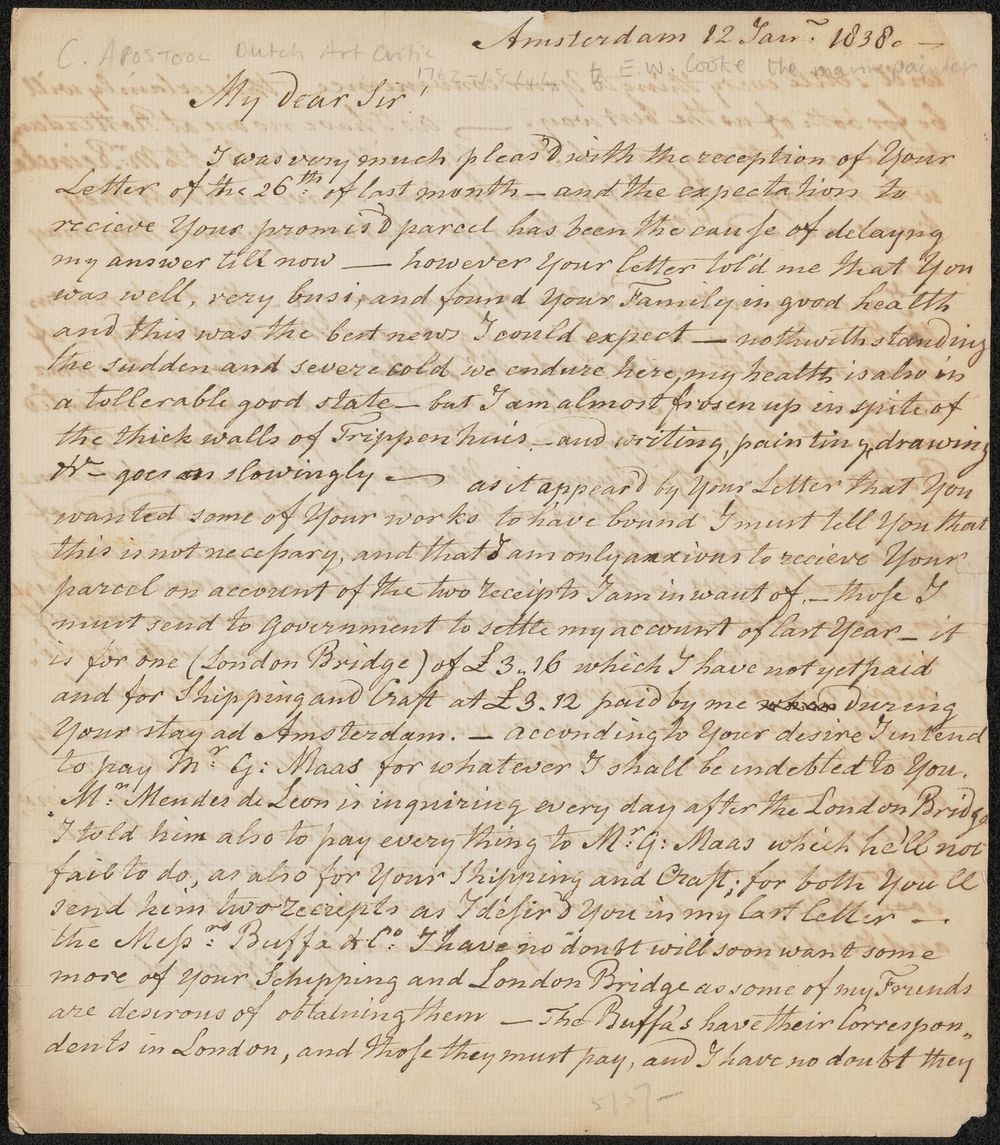 Amsterdam 12 Janr. 1838. —
C. APOSTOOL Dutch Art Critic
1762-1844 to E.W. Cooke the marine painter
My dear Sir!
I was very much pleas'd with the reception of Your
Letter of the 26th: of last month — and the expectation to
recieve Your promis'd parcel has been the cause of delayng
my answer till now — however Your letter told me that You
was well, very busi, and found Your Family in good health
and this was the best news I could expect — nothwithstanding
the sudden and severe cold we endure here, my health is also in
a tollerable good state — but I am almost frosen up in spite of
the thick walls of Trippenhuis — and writing, painting, drawing
&c— goes on slowingly — as it appear'd by Your Letter that You
wanted some of Your works to have bound I must tell You that
this is not necessary, and that I am only anxious to recieve Your
parcel on account of the two receipts I am in want of. — those I
must send to Government to settle my account of last Year — it
is for one (London Bridge) of £3.,16 which I have not yet paid
and for Shipping and Craft at £3.12 paid by me during
Your stay ad Amsterdam. — according to Your desire I intend
to pay Mr G: Maas for whatever I shall be indebted to You.
Mr. Mendes de Leon is inquiring every day after the London Bridge
I told him also to pay everything to Mr. G: Maas which he'll not
fail to do, as also for Your Shipping and Craft; for both You'll
send him two receipts as I desir'd You in my last letter —
the Messrs: Buffa & Co. I have no doubt will soon want some
more of Your Schipping and London Bridge as some of my Friends
are desirous of obtaining them — The Buffa's have their Correspon„
dents in London, and those they must pay, and I have no doubt they
5/5/—